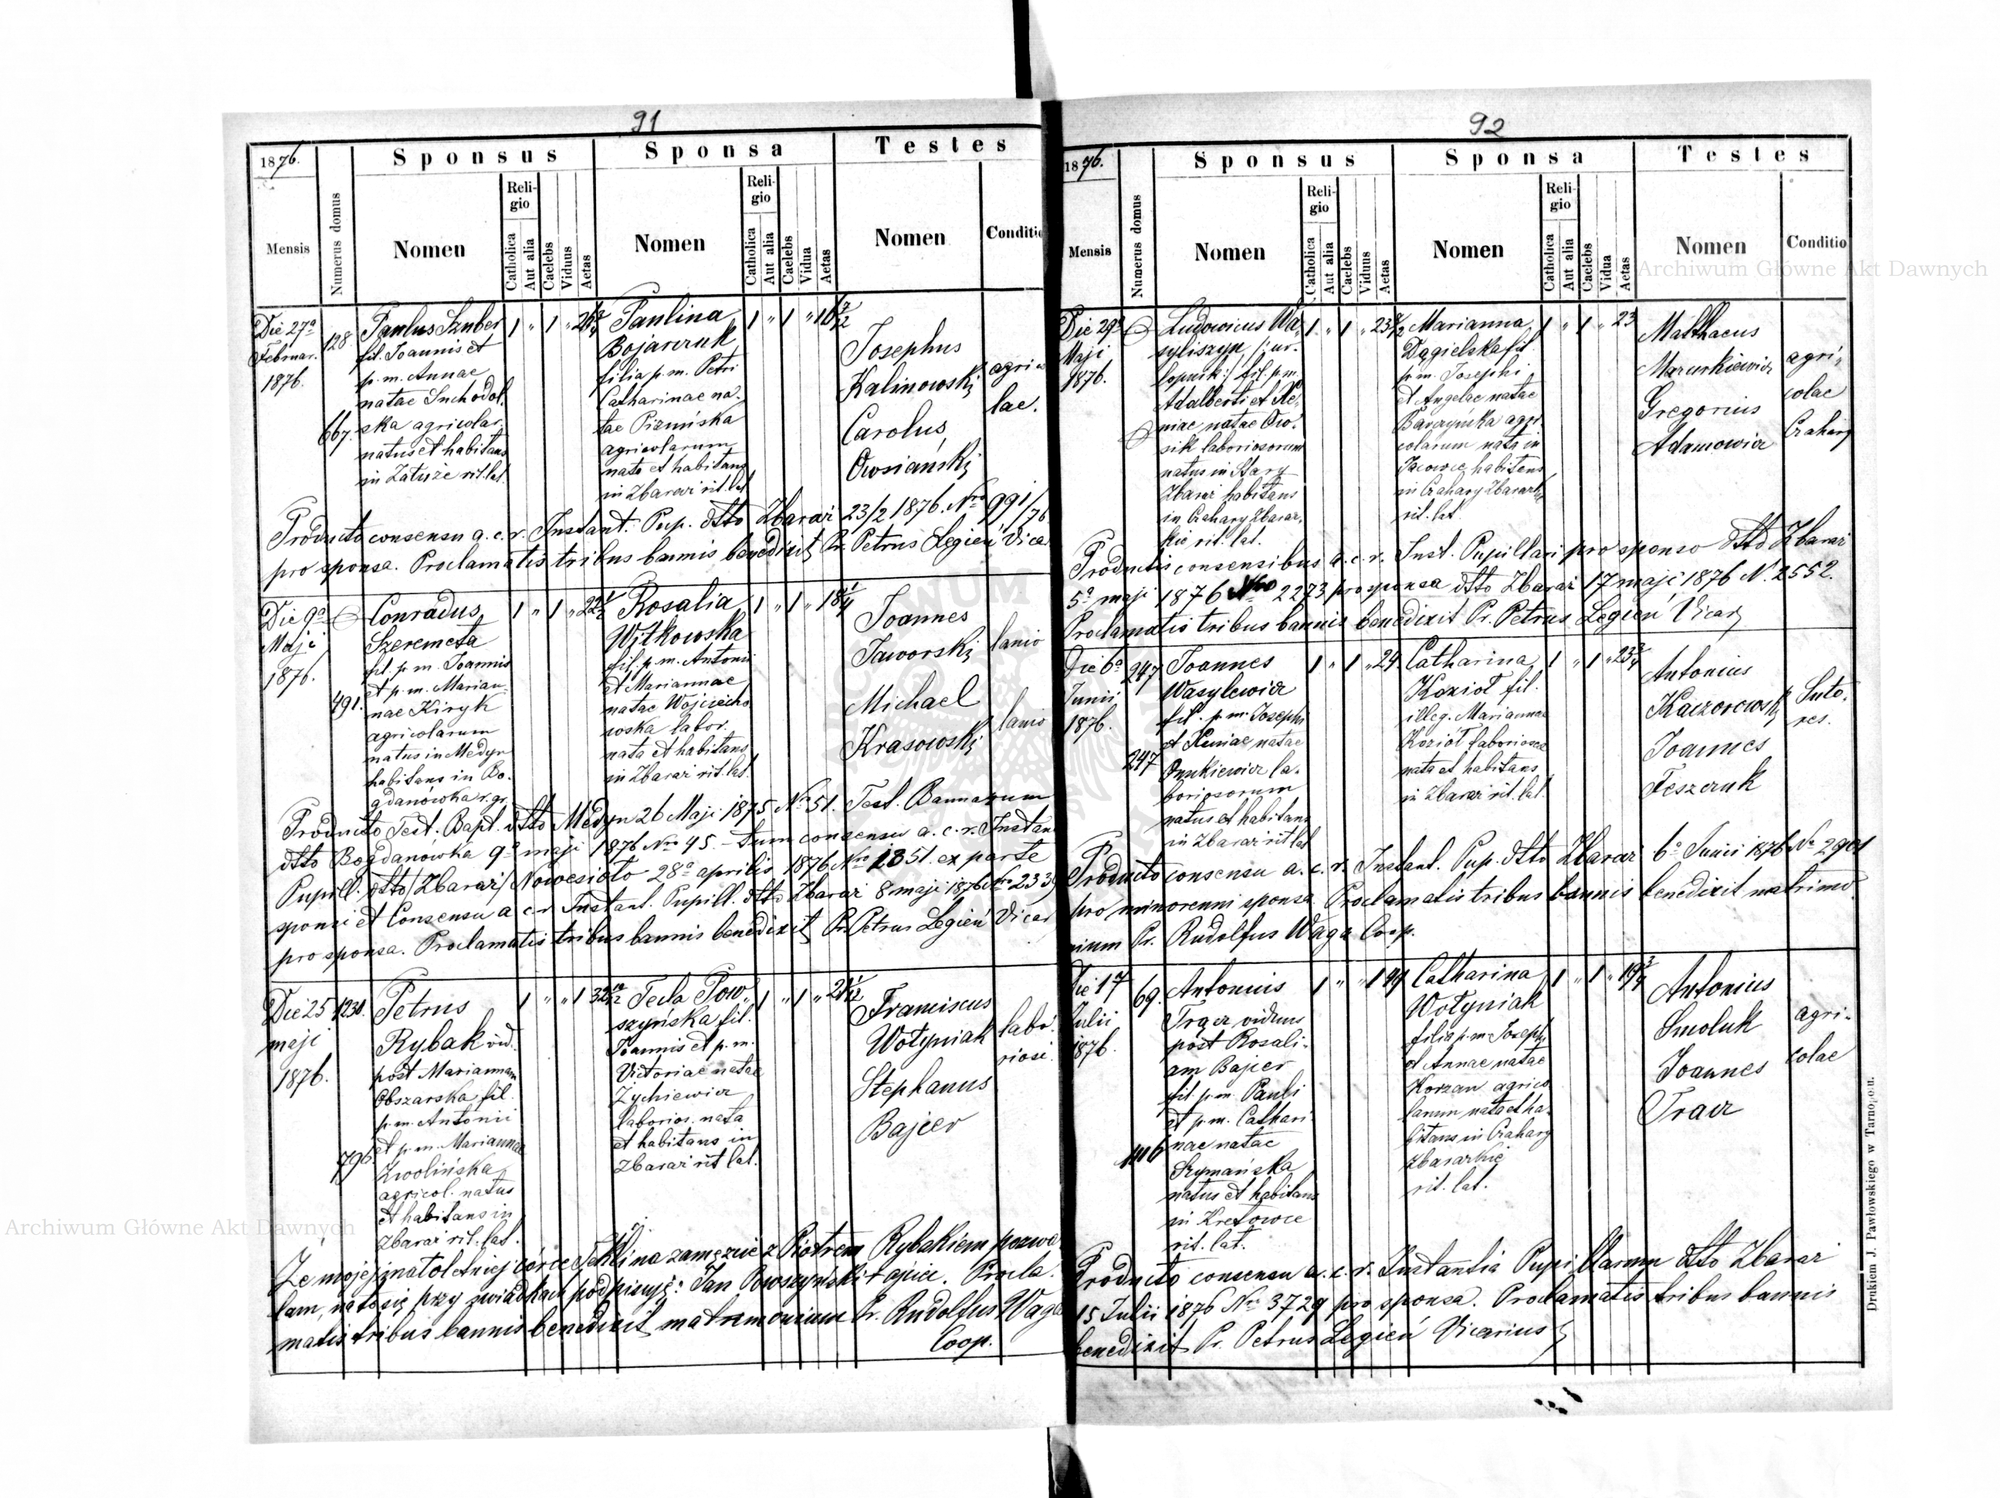 91
1876.
Sponsus
Sponsa
Testes
Mensis
Numerus domus
Nomen
Religio
Catholica
Aut alia
Caelebs
Viduus
Aetas
Nomen
Religio
Catholica
Aut alia
Caelebs
Vidua
Aetas
Nomen
Conditio
Die 27a
Februar.
1876.
128
667.
Paulus Szuber
fil. Joannis et
p. m. Annae
natae Suchodol
ska agricolar.
natus et habitans
in Załuże rit. lat.
1 " 1 "
Paulina
Bojarczuk
filia p. m. Petri
Catharinae na-
tae Pizuńska
agricolarum
nata et habitans
in Zbaraż rit. lat.
1 " 1 " 16 7/12
Josephus
Kalinowski
Carolus
Owsianski
agrico
lae.
Producto consensu a. c. r. Instant. Pup. dtto Zbaraż 23/2 1876. Nro 991/76
pro sponsa. Proclamatis tribus bannis benedixit Pr. Petrus Legień Vica
Die 9a
Maji
1876.
491.
Conradus
Szeremeta
fil. p. m. Joannis
et p. m. Marian-
nae Kiryk
agricolarum
natus in Medyn
habitans in Bo-
gdanówka r. gr.
1 " 1 " 22 1/2
Rosalia
Witkowska
fil. p. m. Antonii
et Mariannae
natae Wojciecho
wska labor.
nata et habitans
in Zbaraż rit. lat.
1 " 1 " 18 1/4
Joannes
Jaworski
Michael
Krasowski
lanio
lanio
Producto Test. Bapt. dtto Medyn 26 Maji 1875 Nro 51. Test. Bannorum
dtto Bogdanówka 9a maji 1876 Nro 45. - tum consensu a. c. r. Instan
Pupill. dtto Zbaraż/Nowesioło 28a aprilis 1876 Nro 1351. ex parte
sponsi et Consensu a c. r. Instant. Pupill. dtto Zbaraż 8 maji 1876 Nro 2339
pro sponsa. Proclamatis tribus bannis benedixit Pr. Petrus Legień Vicar
Die 25
maji
1876.
1231.
796.
Petrus
Rybak vid.
post Mariannam
Obszarska fil.
p. m. Antonii
et p. m. Mariannae
Zwolińska
agricol. natus
et habitans in
Zbaraż rit. lat.
1 " " 1 32 10/12
Tecla Pow
szyńska fil.
Joannis et p. m.
Victoriae natae
Zychiewicz
laborios. nata
et habitans in
Zbaraż rit lat.
1 " 1 " 21 1/12
Franciscus
Wołyniak
Stephanus
Bajcer
labo-
riosi.
Że mojej małoletniej córce Tekli na zamęzcie z Piotrem Rybakiem pozwa
lam, na to się przy świadkach podpisuję: Jan Powszyński + ojciec. Procla-
matis tribus bannis benedixit matrimonium Pr. Rudolfus Waga
Coop.
92
1876.
Sponsus
Sponsa
Testes
Mensis
Numerus domus
Nomen
Religio
Catholica
Aut alia
Caelebs
Viduus
Aetas
Nomen
Religio
Catholica
Aut alia
Caelebs
Vidua
Aetas
Nomen
Conditio
Die 29a
Maji
1876.
Ludovicus Wa-
syliszyn /: ur-
lopnik :/ fil. p. m.
Adalberti et Xe-
niae natae Ow-
sik laboriosorum
natus in Stary
Zbaraż habitans
in Czahary Zbaraz-
kie rit. lat.
1 " 1 "
Marianna
Dągielska fil.
p. m. Josephi
et Angelae natae
Barczyńska agri-
colarum nata in
Jacowce habitans
in Czahary Zbarazkie
rit. lat.
1 " 1 " 23
Mathaeus
Mazurkiewicz
Gregorius
Adamowicz
agri-
colae
Czahary
Productis consensibus a. c. r. Inst. Pupillari pro sponso dtto Zbaraż
5a maji 1876 Nro 2273 pro sponsa dtto Zbaraż 17 maji 1876 N. 2552.
Proclamatis tribus bannis benedixit Pr. Petrus Legień Vicar
Die 6a
Junii
1876.
247
247
Joannes
Wasylewicz
fil. p. m. Josephi
et Xeniae natae
Onukiewicz la-
boriosorum
natus et habitans
in Zbaraż rit lat
1 " 1 " 24
Catharina
Kozioł fil.
illeg. Mariannae
Kozioł laboriosae
nata et habitans
in Zbaraż rit. lat.
1 " 1 " 23 3/4
Antonius
Kaczorowski
Joannes
Feszczuk
Suto-
res.
Producto consensu a. c. r. Instant. Pup. dtto Zbaraż 6a Junii 1876 No 2901
pro minorenni sponsa Proclamatis tribus bannis benedixit matrimo-
nium Pr. Rudolfus Waga Coop.
Die 17
Julii
1876.
69.
1106
Antonius
Tracz viduus
post Rosali-
am Bajcer
fil. p. m. Pauli
et p. m. Cathari
nae natae
Szymańska
natus et habitans
in Kretowce
rit. lat.
1 " " 1 44
Catharina
Wołyniak
filia p. m. Josephi
et Annae natae
Korzan agrico
larum nata et ha-
bitans in Czahary
Zbarazkie
rit. lat.
1 " 1 " 19 3/4
Antonius
Smoluk
Joannes
Tracz
agri-
colae
Producto consensu a. c. r. Instantia Pupillarum dtto Zbaraż
15 Julii 1876 No 3729 pro sponsa. Proclamatis tribus bannis
benedixit Pr. Petrus Legień Vicarius
Drukiem J. Pawłowskiego w Tarnopolu.
Archiwum Główne Akt Dawnych
Archiwum Główne Akt Dawnych